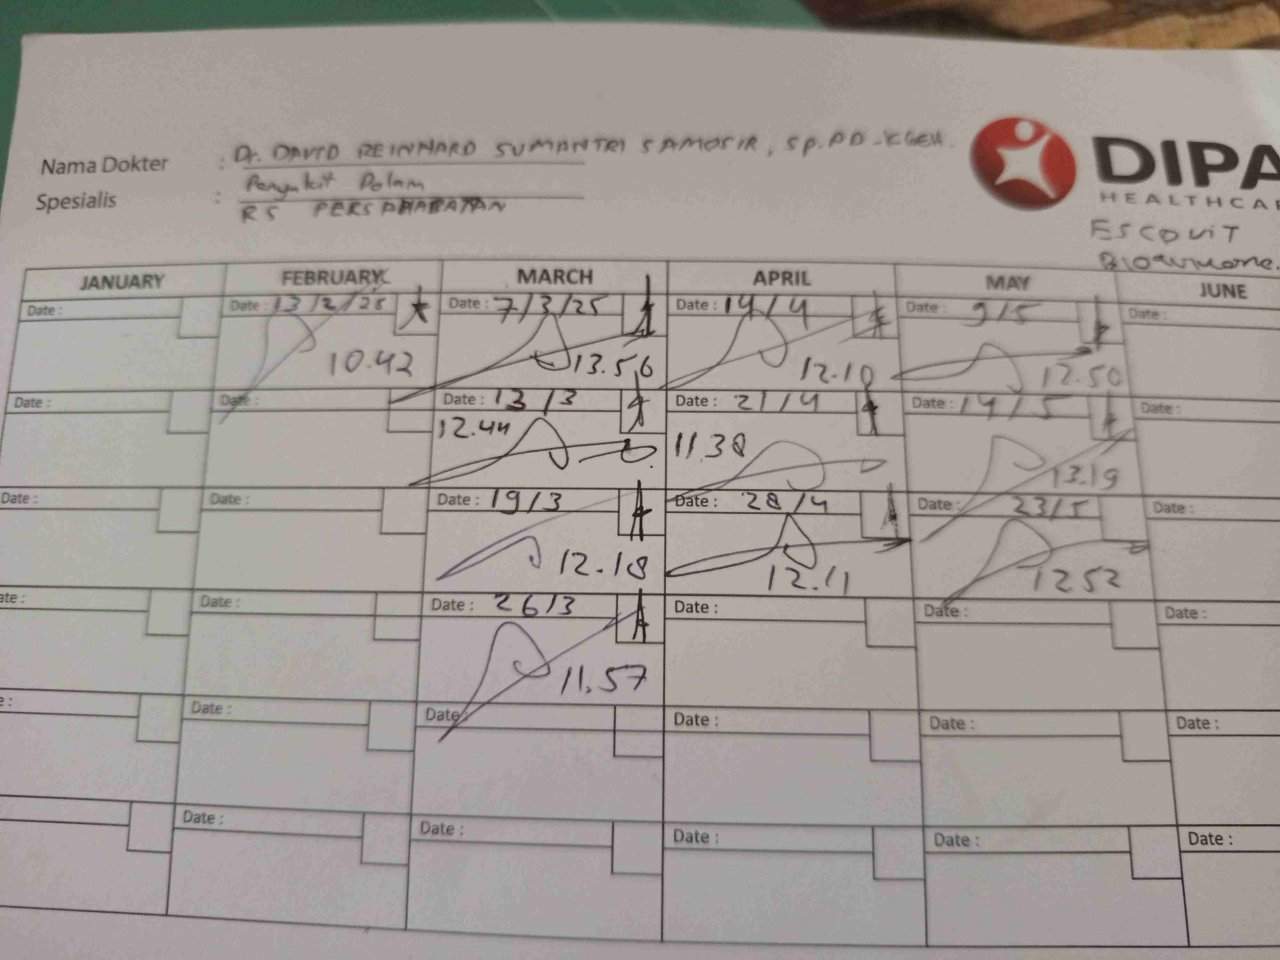 Nama Dokter : Dr. DAVID REINHARD SUMANTRI SAMOSIR, SP.PD-KGEH.
Spesialis : Penyakit Dalam
RS PERSAHABATAN
DIPA
HEALTHCA
ESCOVIT
JANUARY FEBRUARY MARCH APRIL MAY JUNE
Date : Date : 13/2/25 Date : 7/3/25 Date : 14/4 Date : 9/5 Date :
10.42 13.56 12.10 12.50
Date : Date : Date : 13/3 Date : 21/4 Date : 14/5 Date :
12.44 11.38 13.19
Date : Date : Date : 19/3 Date : 28/4 Date : 23/5 Date :
12.18 12.11 12.52
ate : Date : Date : 26/3 Date : Date : Date :
11.57
e : Date : Date Date : Date : Date :
Date : Date : Date : Date : Date :